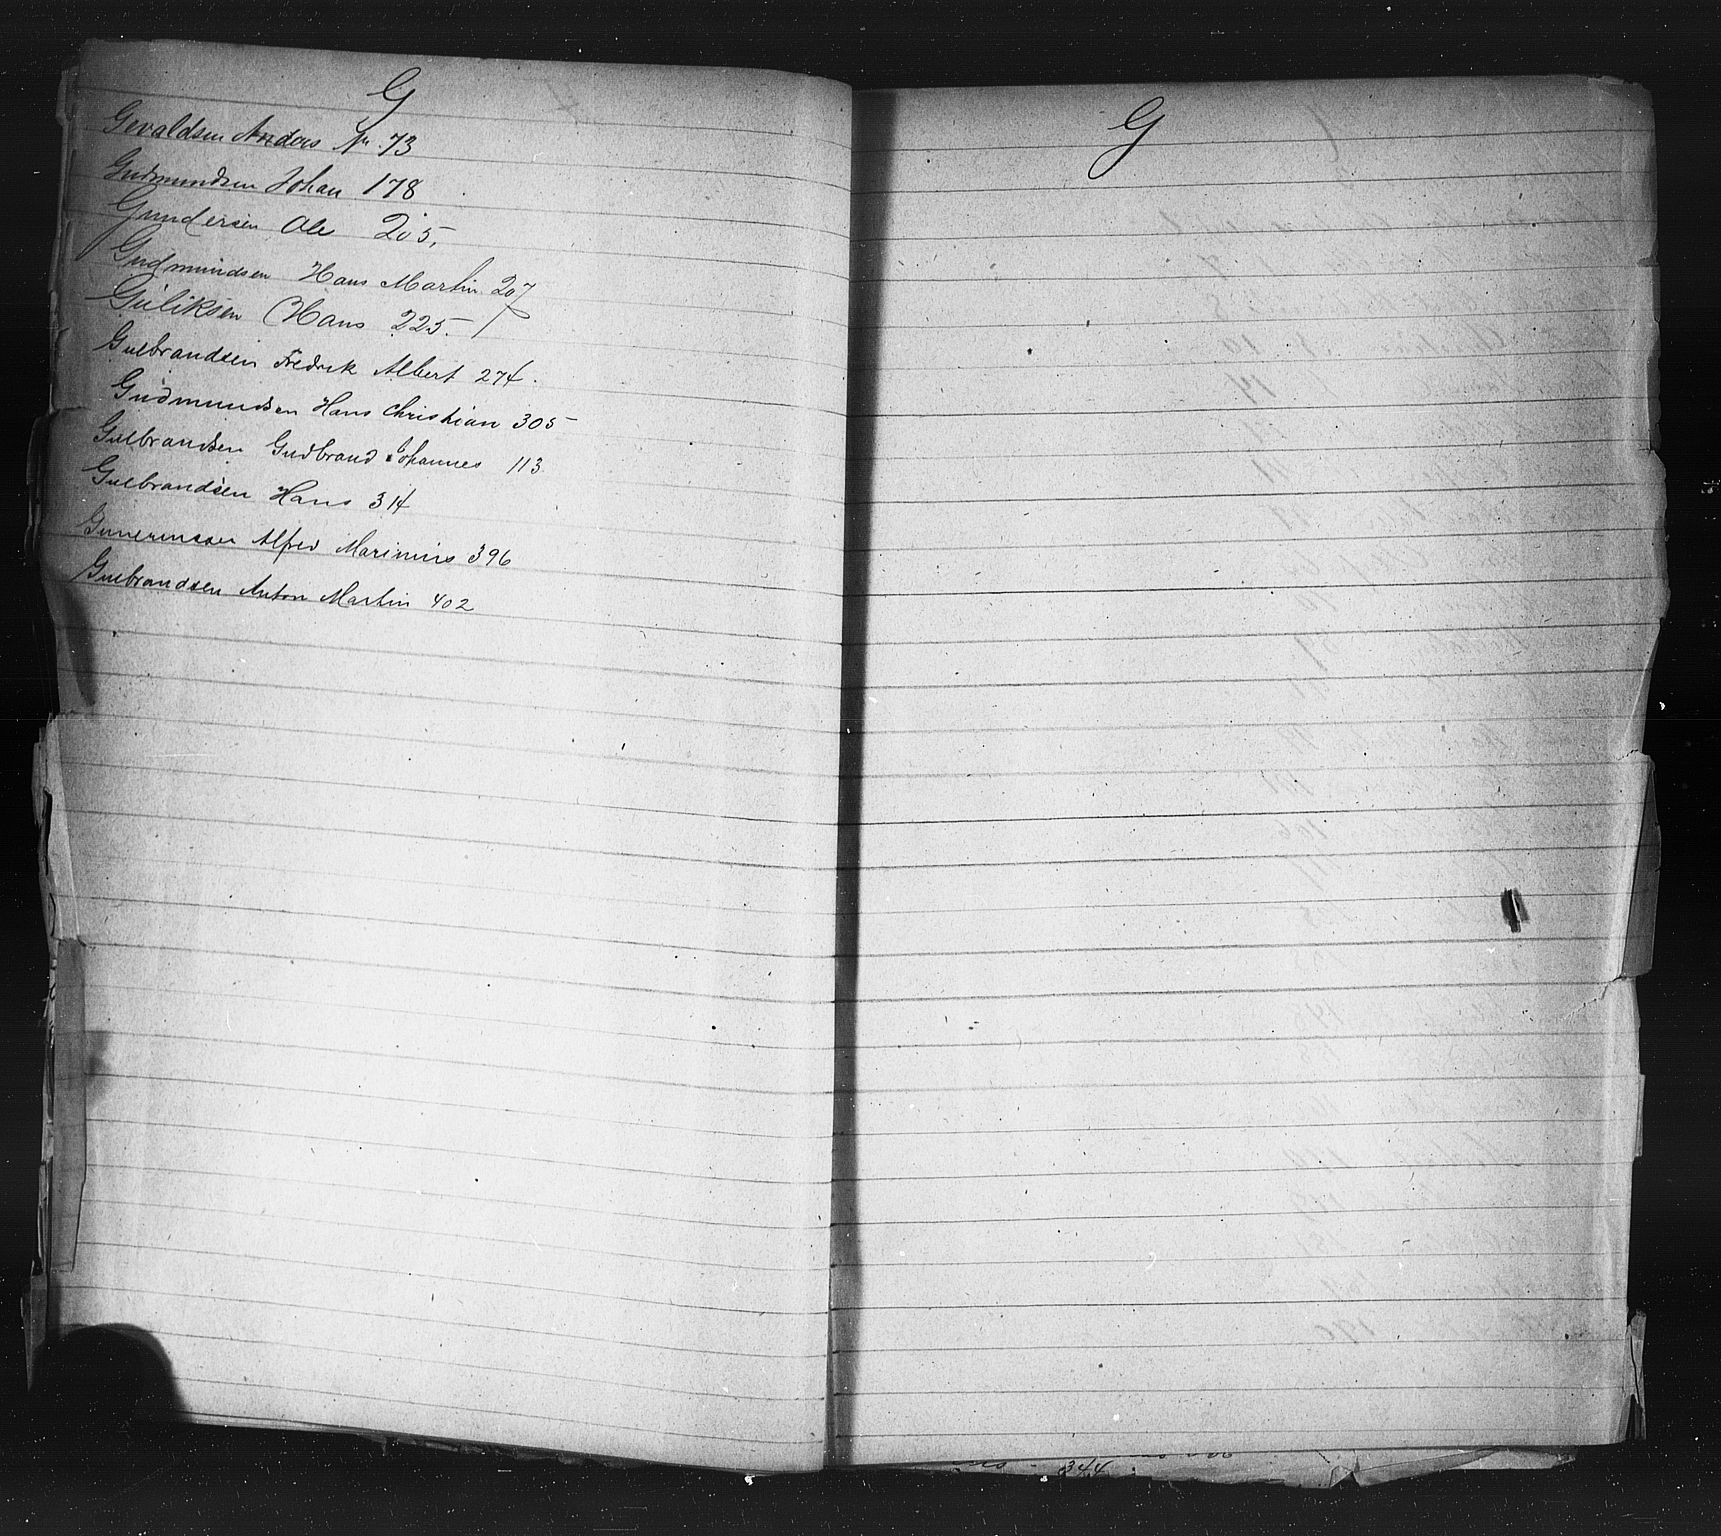 G
Gevaldsen Anders Nr. 73
Gudmundsen Johan 178
Gundersen Ole 205,
Gudmundsen Hans Martin 207
Guliksen Hans 225.
Gulbrandsen Fredrik Albert 274.
Gudmundsen Hans Christian 305
Gulbrandsen Gudbrand Johannes 113
Gulbrandsen Hans 314
Alfred Marinius 396
Gulbrandsen Anton Martin 402
G
344